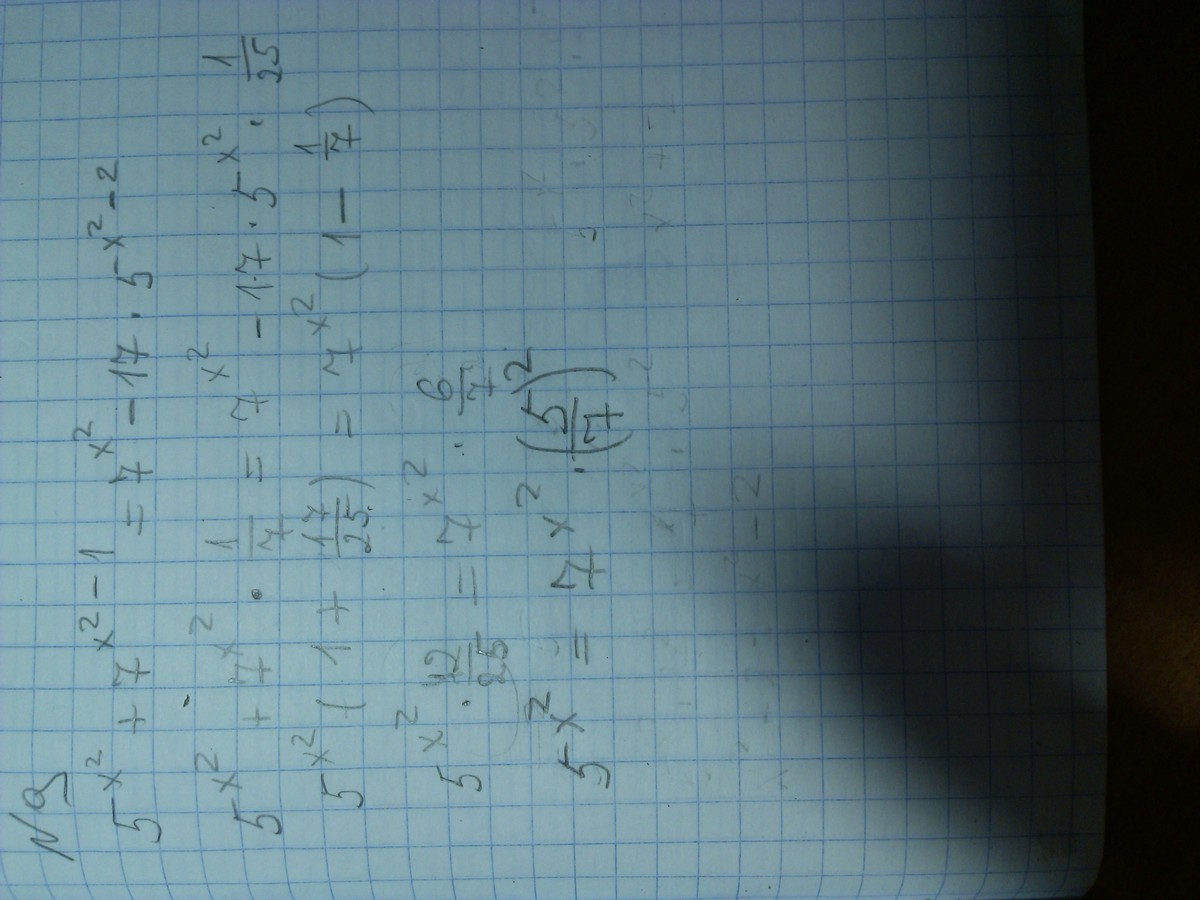 N9
5^{x²} + 7^{x²-1} = 7^{x²} - 17 · 5^{x²-2}
5^{x²} + 7^{x²} · 1/7 = 7^{x²} - 17 · 5^{x²} · 1/25
5^{x²} (1 + 17/25) = 7^{x²} (1 - 1/7)
5^{x²} · 42/25 = 7^{x²} · 6/7
5^{x²} = 7^{x²} · (5/7)²